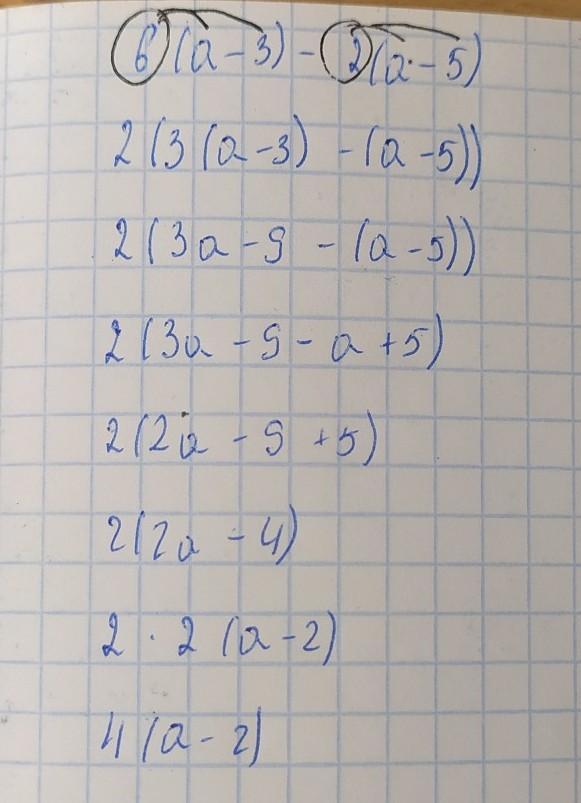 6(a-3) - 2(a-5)
2(3(a-3) -(a-5))
2(3a-9 -(a-5))
2(3a-9-a+5)
2(2a-9+5)
2(2a-4)
2·2(a-2)
4(a-2)